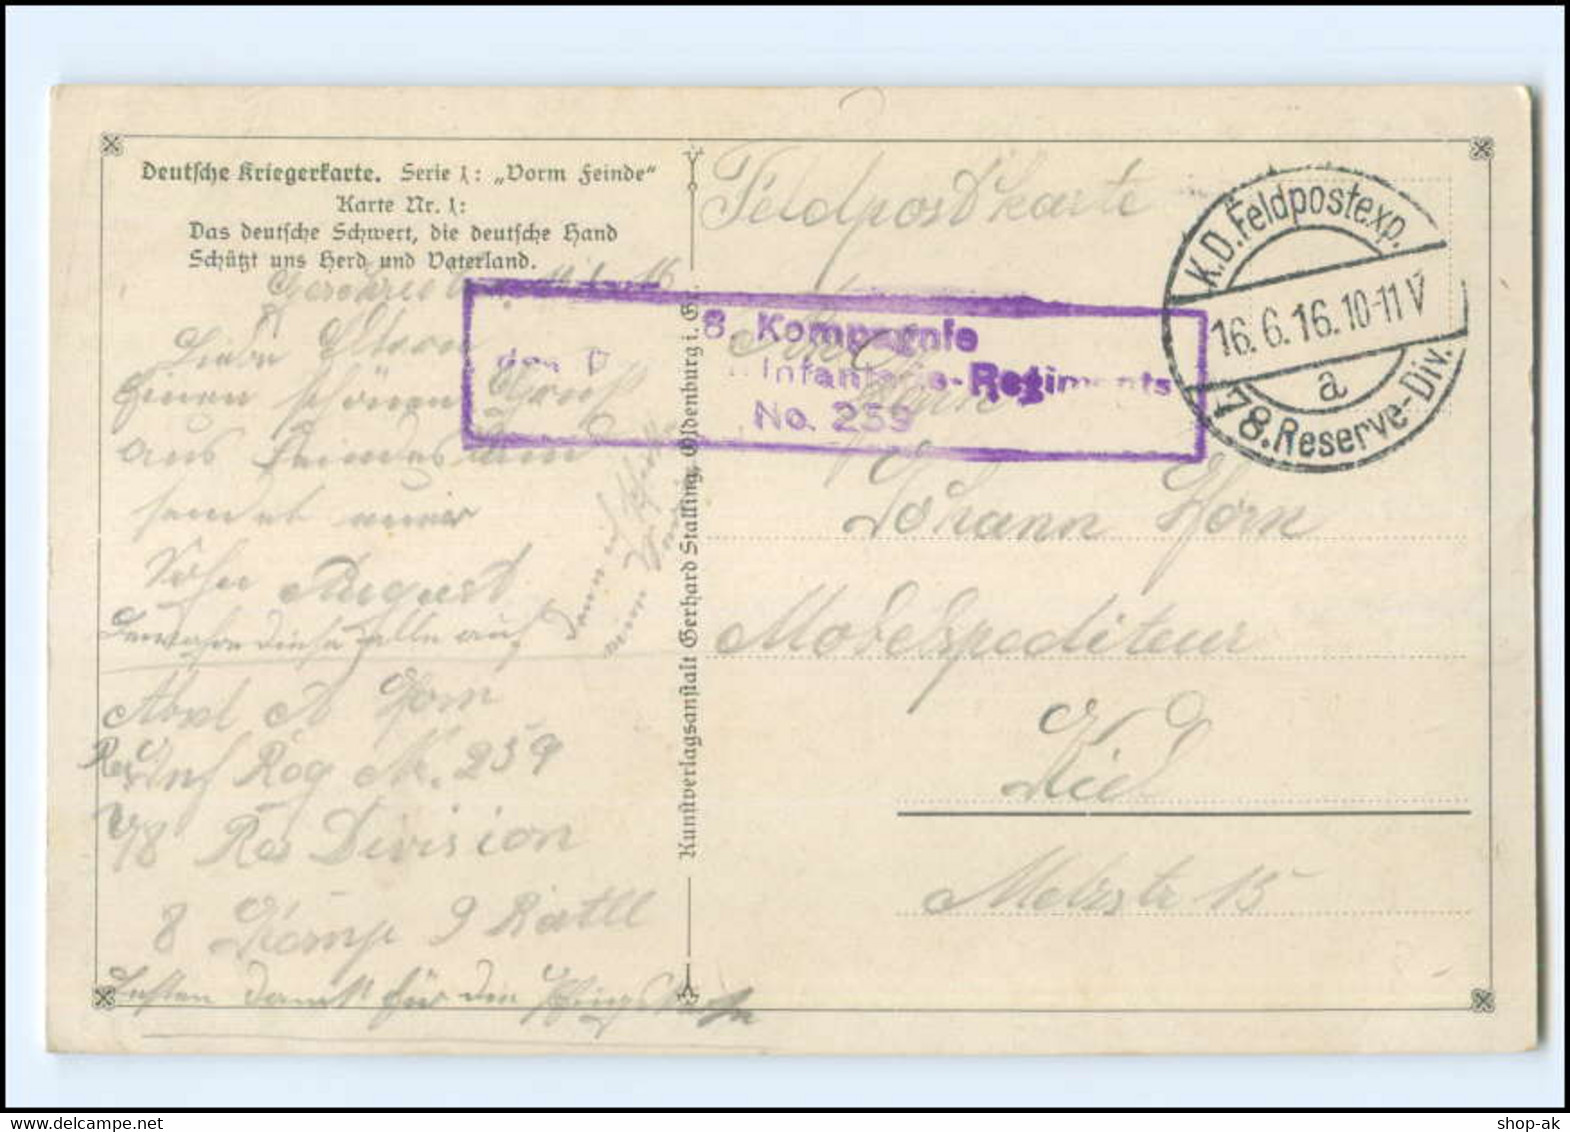 Deutsche Kriegerkarte. Serie 1: „Vorm Feinde“
Karte Nr. 1:
Das deutsche Schwert, die deutsche Hand
Schützt uns Herd und Vaterland.
Geschrieben
Liebe Eltern
Einen schönen Gruß
aus Feindesland
sendet euer
Sohn August
Bewahre diese alle auf
Abs A Horn
Res Inf Reg Nr. 259
78 Res Division
8 Komp
Besten Dank für die
Kunstverlagsanstalt Gerhard Stalling, Oldenburg i. Gr.
Feldpostkarte
8. Kompagnie
des Infanterie-Regiments
No. 259
K.D. Feldpostexp.
16.6.16.10-11 V
a
78. Reserve-Div.
Johann Horn
Möbelspediteur
Kiel
15
shop-ak